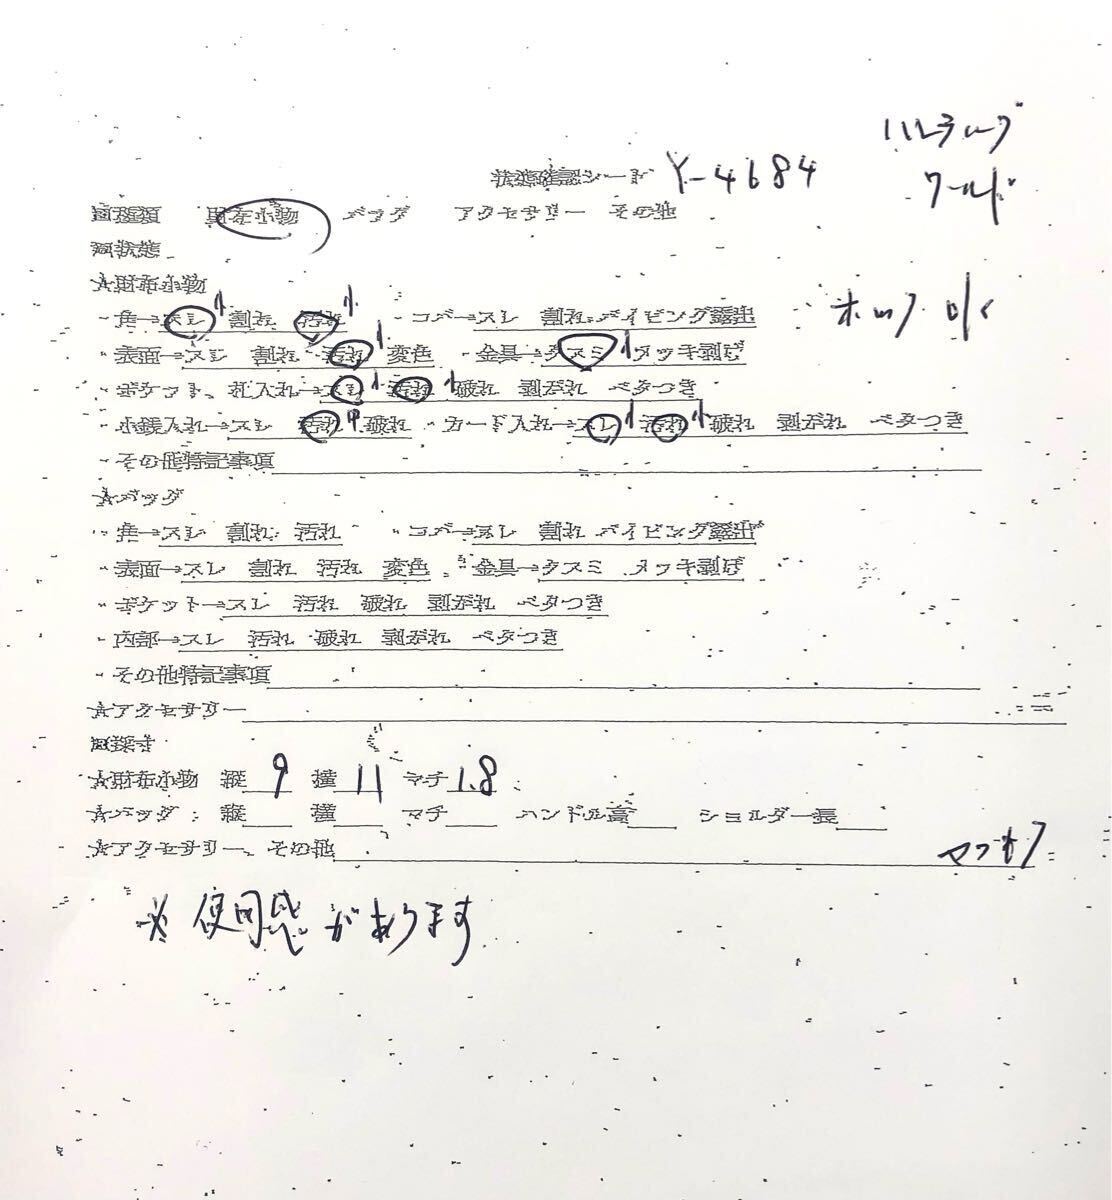 ハンティング
ワールド
状態確認シート Y-4684
回種類 財布小物 バッグ アクセサリー その他
回状態
☆財布小物
・角→スレ小 割れ 汚れ小 ・コバ→スレ 割れ パイピング露出
ホック OK
・表面→スレ 割れ 汚れ小 変色 ・金具→クスミ小 メッキ剥げ
・ポケット、札入れ→スレ小 汚れ小 破れ 剥がれ ベタつき
・小銭入れ→スレ 汚れ中 破れ ・カード入れ→スレ小 汚れ小 破れ 剥がれ ベタつき
・その他特記事項
☆バッグ
・角→スレ 割れ 汚れ ・コバ→スレ 割れ パイピング露出
・表面→スレ 割れ 汚れ 変色 ・金具→クスミ メッキ剥げ
・ポケット→スレ 汚れ 破れ 剥がれ ベタつき
・内部→スレ 汚れ 破れ 剥がれ ベタつき
・その他特記事項
☆アクセサリー
回採寸
☆財布小物 縦 9 横 11 マチ 1.8
☆バッグ: 縦 横 マチ ハンドル高 ショルダー長
☆アクセサリー、その他
※使用感があります